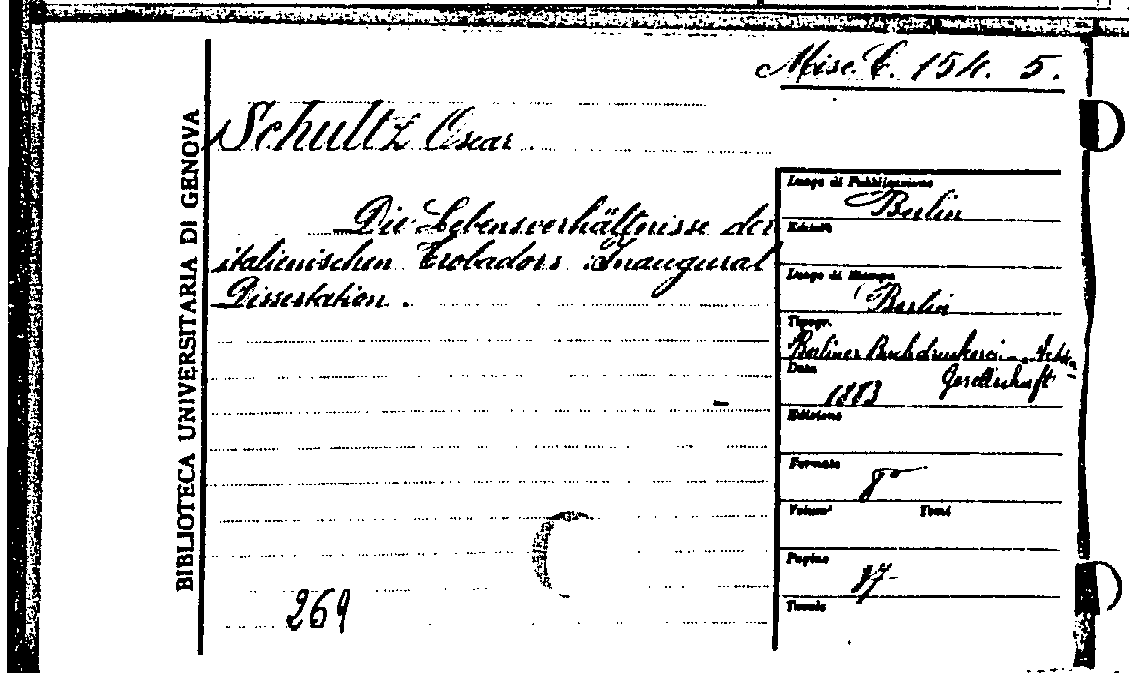 Misc. C. 154. 5.
BIBLIOTECA UNIVERSITARIA DI GENOVA
Schultz Oscar.
Die Lebensverhältnisse der
italienischen Trobadors. Inaugural
Dissertation.
269
Luogo di Pubblicazione
Berlin
Editore
Luogo di Stampa
Berlin
Tipogr.
Berliner Buchdruckerei-Actien
Gesellschaft
Data
1883
Edizione
Formato
8°
Volumi Tomi
Pagine
37
Tavole